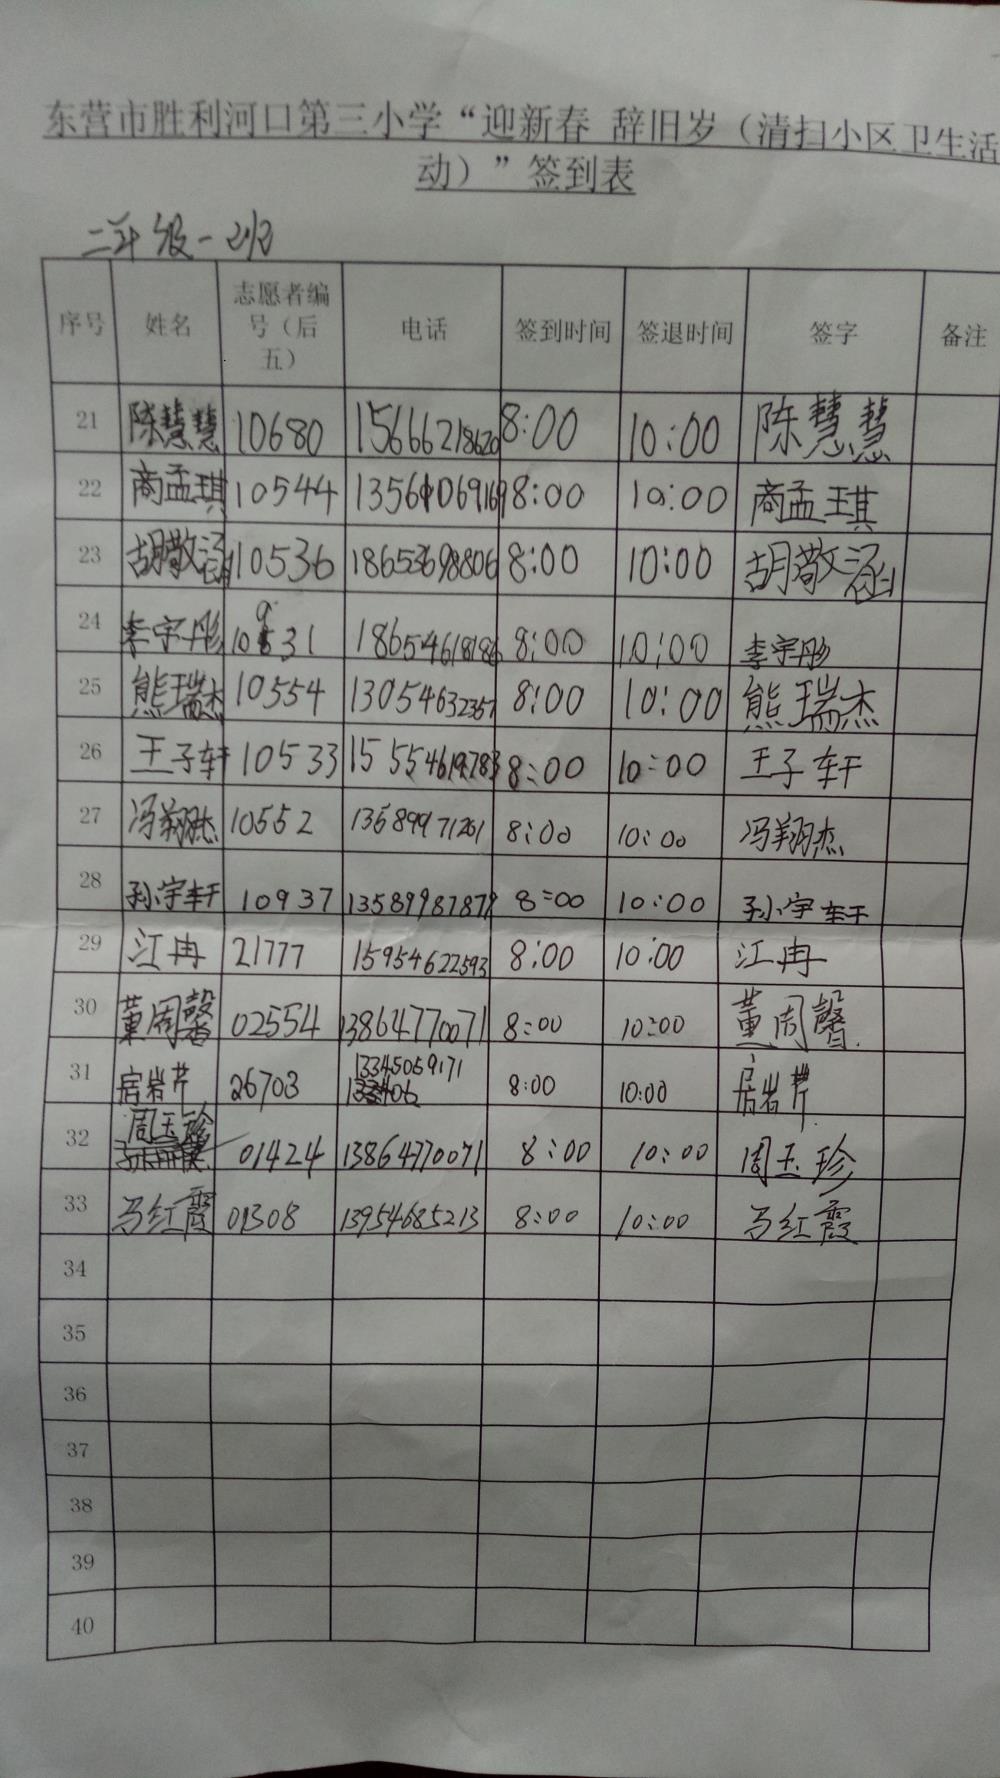 东营市胜利河口第三小学“迎新春 辞旧岁（清扫小区卫生活
动）”签到表
二年级一班
序号 姓名 志愿者编号（后五） 电话 签到时间 签退时间 签字 备注
21 陈慧慧 10680 15666218620 8:00 10:00 陈慧慧
22 商孟琪 10544 13561069169 8:00 10:00 商孟琪
23 胡敬涵 10536 18653698806 8:00 10:00 胡敬涵
24 李宇彤 10931 18654618186 8:00 10:00 李宇彤
25 熊瑞杰 10554 13054632357 8:00 10:00 熊瑞杰
26 王子轩 10533 15554619783 8:00 10:00 王子轩
27 冯翔杰 10552 13589971261 8:00 10:00 冯翔杰
28 孙宇轩 10937 13589987879 8:00 10:00 孙宇轩
29 江冉 21777 15954622593 8:00 10:00 江冉
30 董周馨 02554 13864770071 8:00 10:00 董周馨
31 房岩芹 26703 13345059171 8:00 10:00 房岩芹
32 周玉珍 01424 13864770071 8:00 10:00 周玉珍
33 马红霞 01308 13954685213 8:00 10:00 马红霞
34
35
36
37
38
39
40